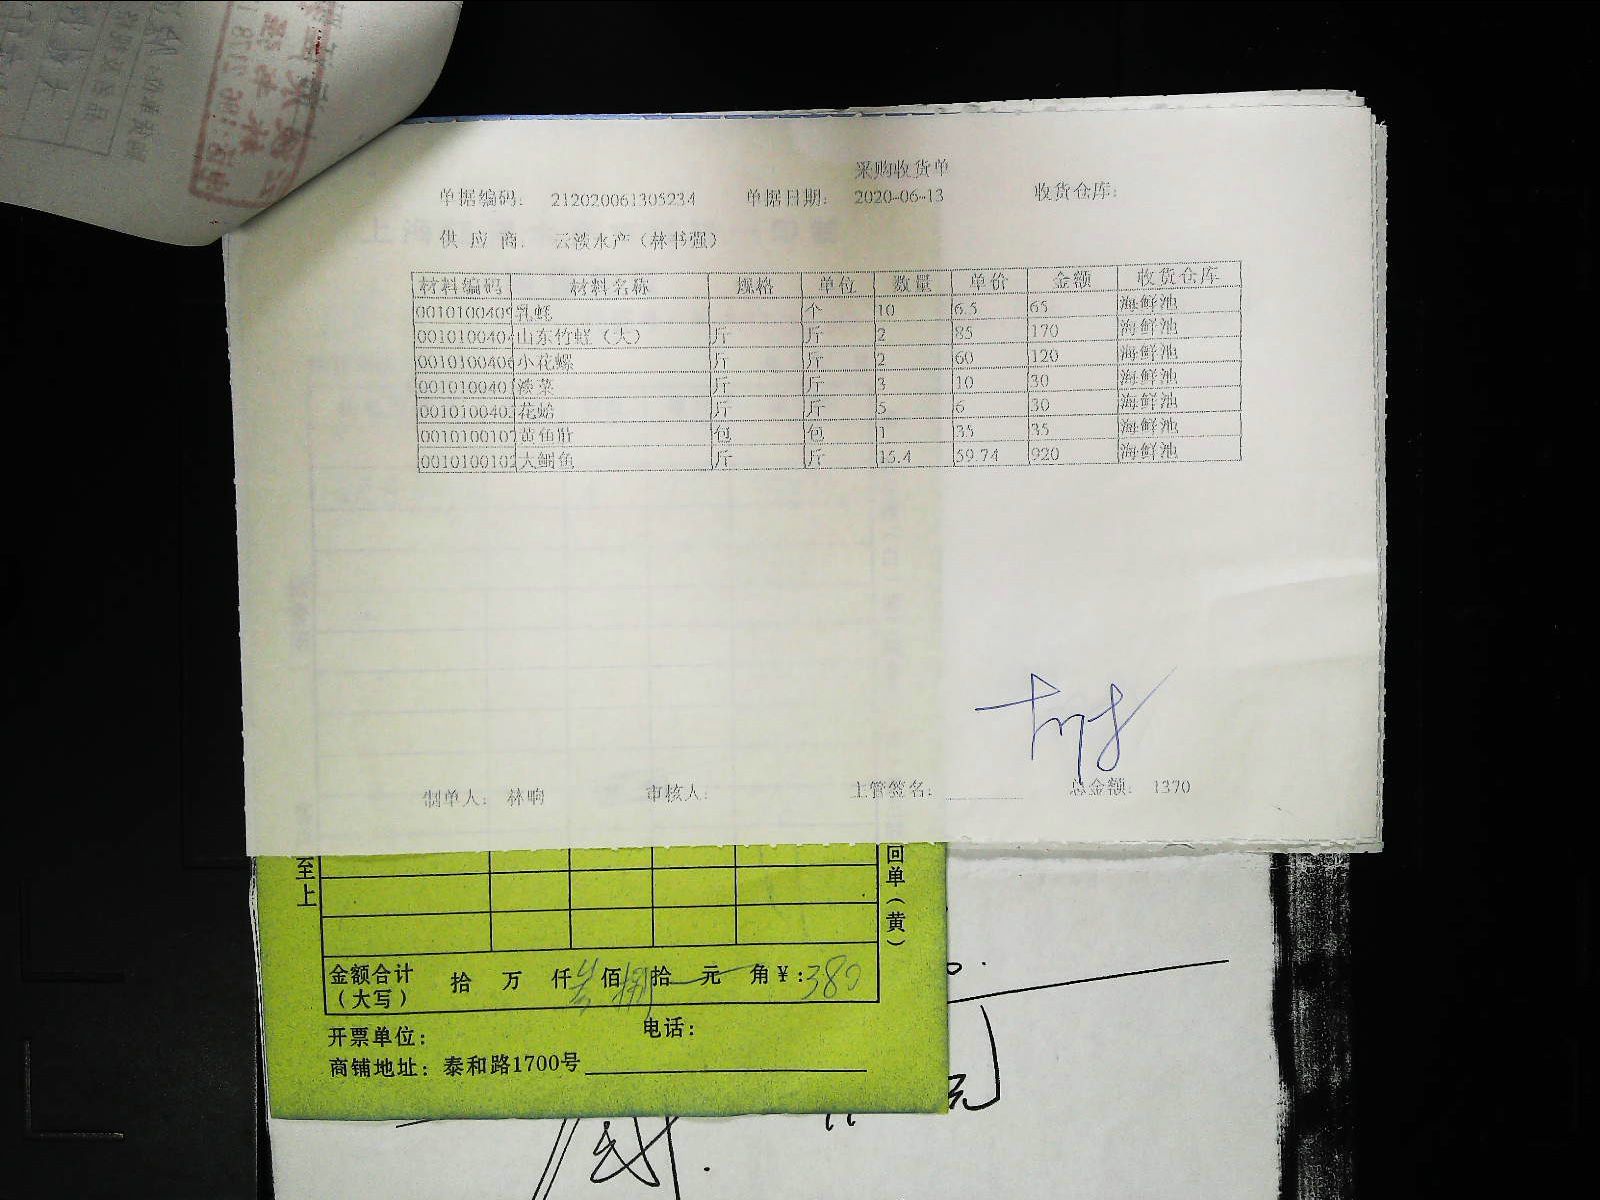 采购收货单
单据编码: 212020061305234 单据日期: 2020-06-13 收货仓库:
供应商: 云淡水产(林书强)
材料编码 材料名称 规格 单位 数量 单价 金额 收货仓库
0010100409 乳蚝 个 10 6.5 65 海鲜池
001010040 山东竹蛏(大) 斤 斤 2 85 170 海鲜池
0010100406 小花螺 斤 斤 2 60 120 海鲜池
001010040 淡菜 斤 斤 3 10 30 海鲜池
001010040 花蛤 斤 斤 5 6 30 海鲜池
0010100107 黄鱼肚 包 包 1 35 35 海鲜池
0010100102 大鲷鱼 斤 斤 15.4 59.74 920 海鲜池
制单人: 林晌 审核人: 主管签名: 总金额: 1370
至上
回单(黄)
金额合计(大写) 拾 万 仟 佰 捌拾 元 角 ¥:380
开票单位: 电话:
商铺地址: 泰和路1700号
元